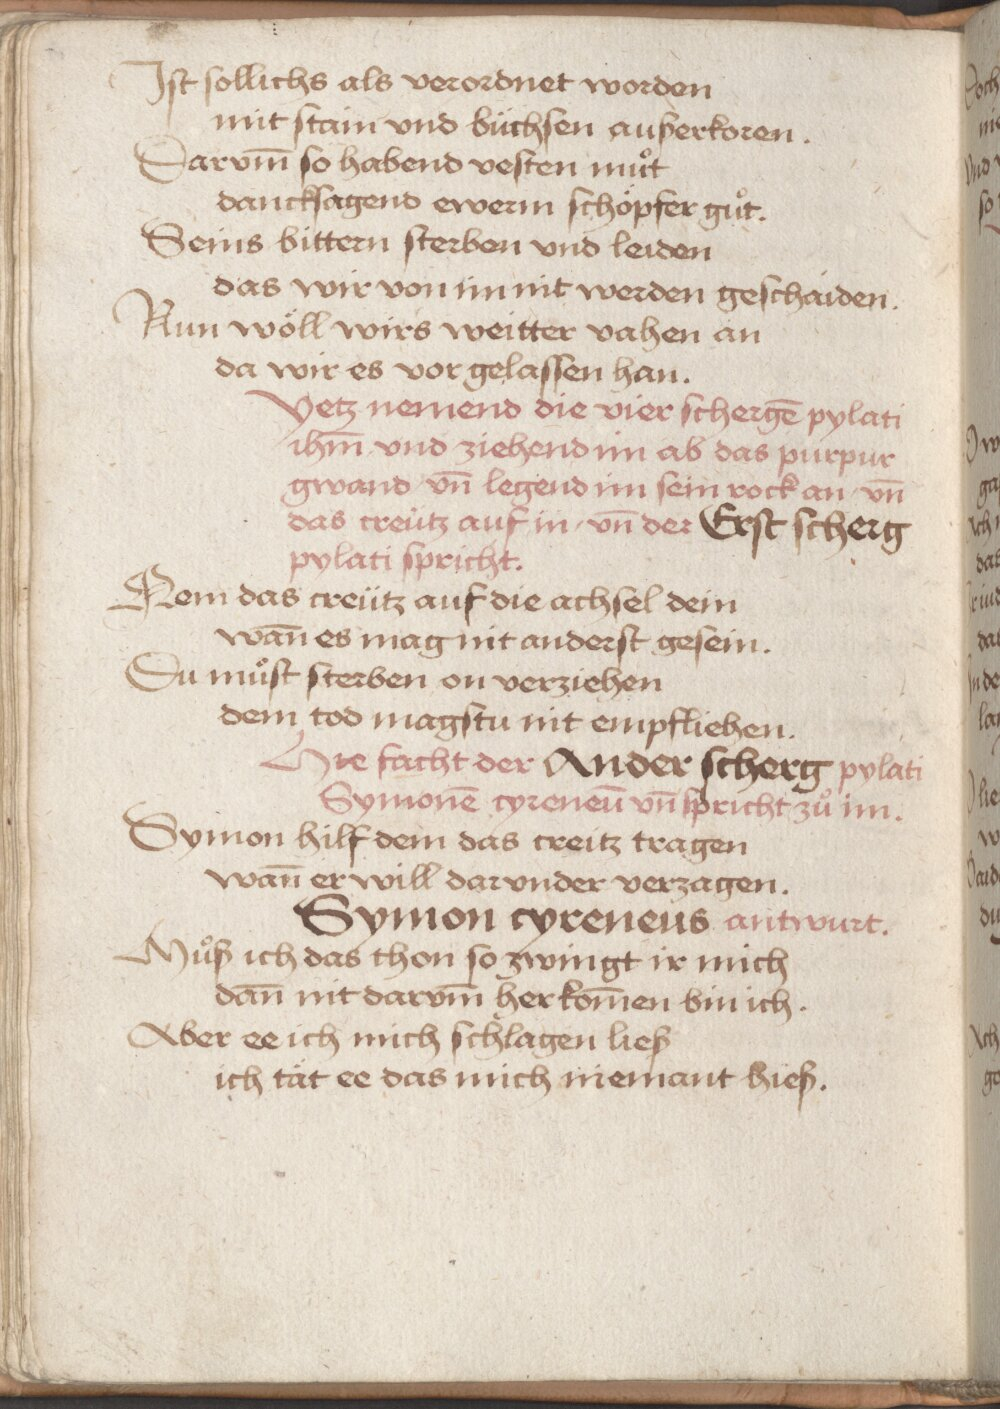 Ist sollichs als verordnet worden
mit stain vnd büchsen außerkoren.
Darvm̄ so habend vesten můt
dancksagend ewerm schöpfer gůt.
Seins bittern sterben vnd leiden
das wir von im nit werden geschaiden.
Nun wöll wirs weitter vahen an
da wir es vor gelassen han.
Yetz nemend die vier schergē pylati
ihm̄ vnd ziehend im ab das purpur
gwand / vn̄ legend im sein rock an / vn̄
das creütz auf in / vn̄ der Erst scherg
pylati spricht.
Nem das creütz auf die achsel dein
wan̄ es mag nit anderst gesein.
Du můst sterben on verziehen
dem tod magstu nit empfliehen.
Hie facht der Ander scherg pylati
Symonē cyreneū vn̄ spricht zů im.
Symon hilf dem das creitz tragen
wan̄ er will darvnder verzagen.
Symon cyreneus antwurt.
Můß ich das thon so zwingt ir mich
dan̄ nit darvm̄ her kom̄en bin ich.
Aber ee ich mich schlagen ließ
ich tät ee das mich niemant hieß.